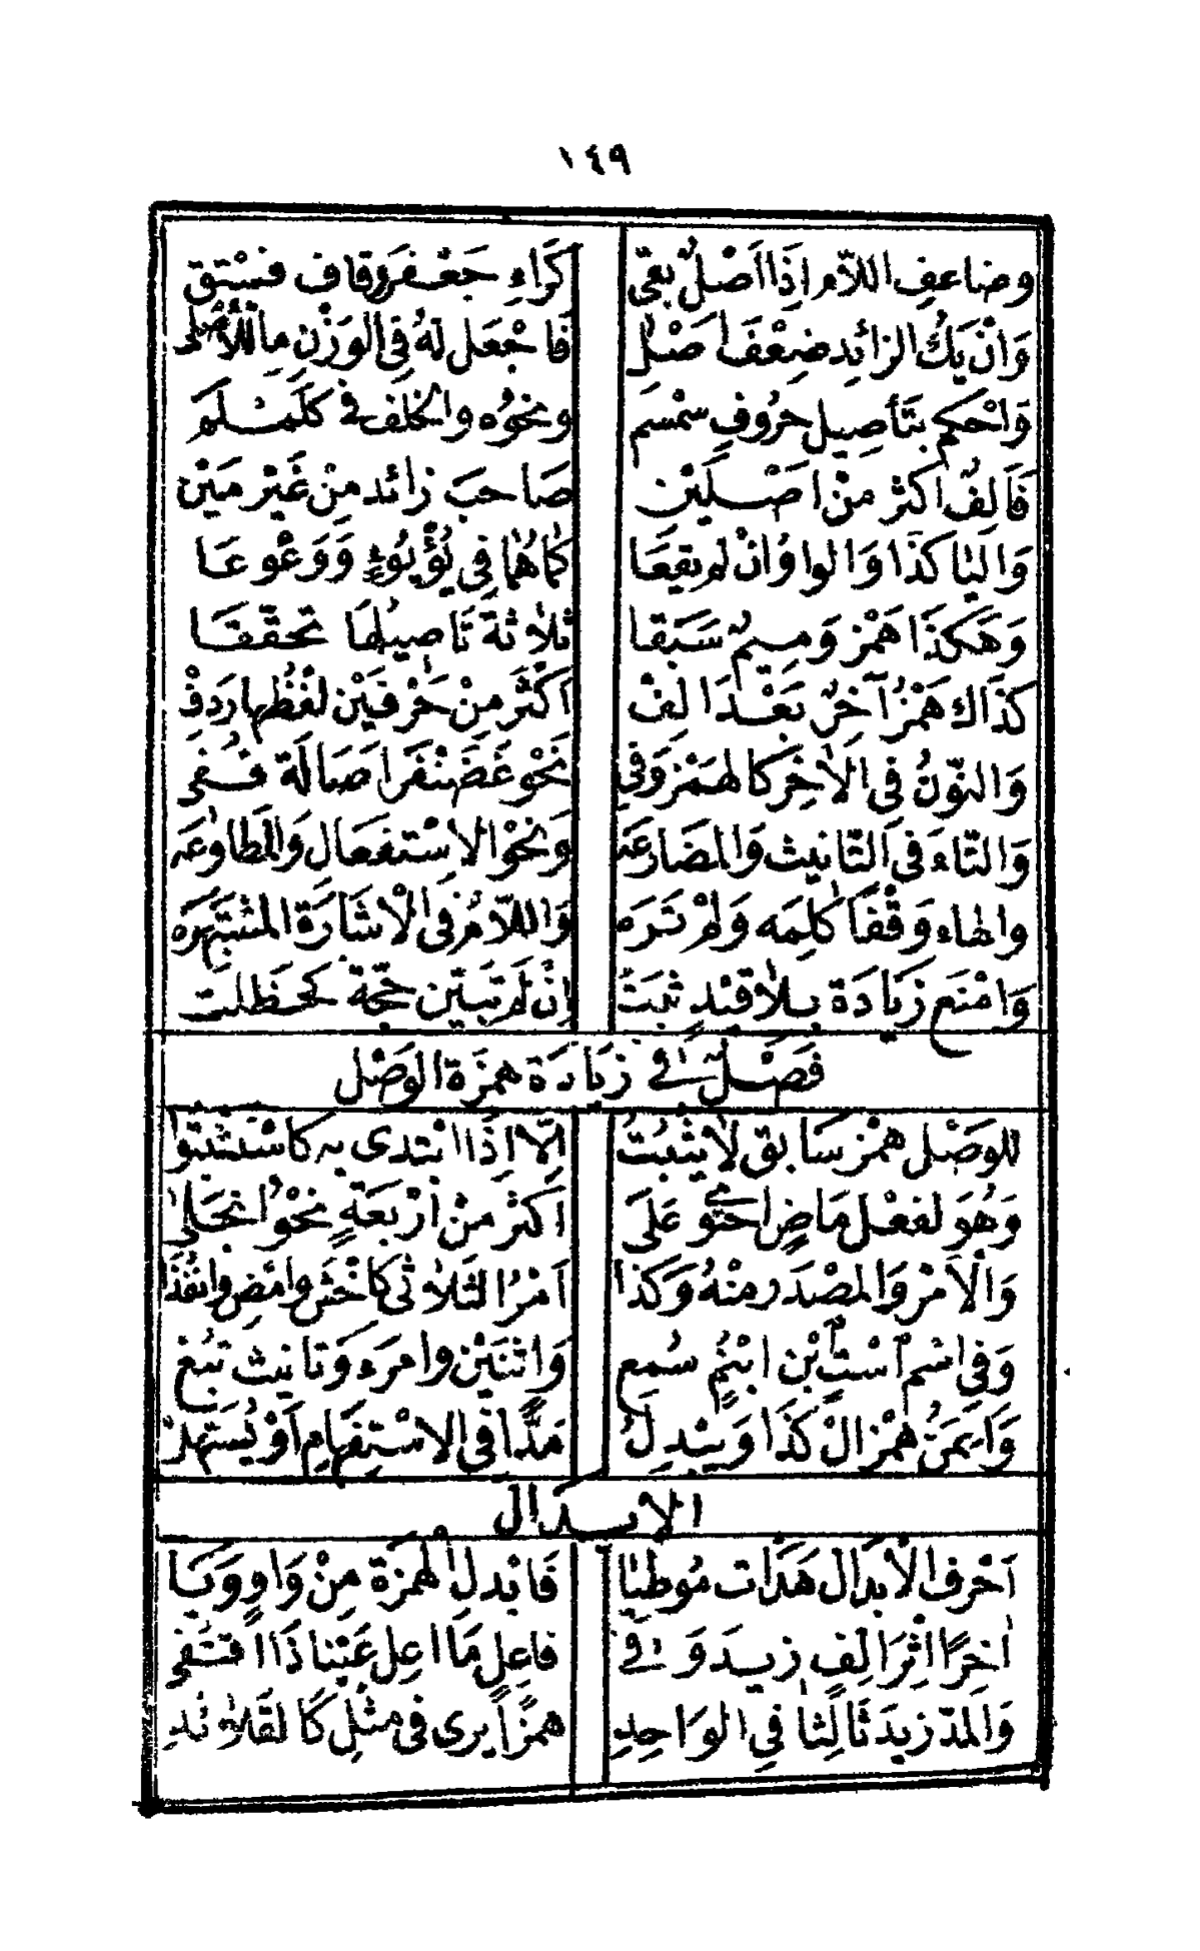 ١٤٩
وضاعف اللّام اذَا اَصْلٌ بقى كَرَاءِ جَعْفَر وقاف فستق
وَانْ يَكُ الزائد ضِعْفَ اَصْلى فَاجْعَل لَهُ فِى الوَزْنِ مِا للاَصْلى
وَاحْكم بتَأصِيل حرُوفِ سمْسم ونحوُه والخلف فى كَلَمْلَم
فَاَلِفٌ اَكثر منْ اَصْلَيْن صَاحبَ زائد مِنْ غَيْر مَيْن
وَاليَا كَذَا وَالواوُ انْ لم يقعَا كمَا هُمَا فِى يُؤْيُؤٍ وَوَعْوعَا
وَهَكَذَا هَمْز وَميمٌ سَبَقا ثلاثة تَاصيلهَا تحقّقَا
كَذَاك هَمْزٌ آخِرٌ بَعْدَ اَلِفْ اَكْثَر مِنْ حَرْفَيْن لَفْظُها رَدِفْ
وَالنّونُ فِى الآخِر كالهَمْز وَفى نَحْو غَضَنْفَر اَصَالة كُفى
وَالتّاءَ فى التّانيث وَالمضَارعَه وَنحْو الاسْتفعَالِ وَالمطاوعَه
والهاء وَقْفًا كَلِمَه وَلمْ تَرَه وَاللّامُ فى الْاشَارَة المشْتَهرَه
وَامْنَع زيَادَة بلاقيْدٍ ثبَتْ اِنْ لَم تَبَيّن حجّة كحَظَلت
فَصْلٌ فى زيَادَة همزَة الوَصْل
للوَصْل همْز سَابق لَا يثبُتُ اِلّا اذَا ابْتدى به كَاسْتثبتوا
وَهُوَ لفعْل مَاضٍ احْتَوى عَلَى اَكثر منْ اَرْبعَةٍ نحْوُ انجَلى
وَالْاَمْر وَالمصْدَر منْهُ وَكَذا اَمْرُ الثلَاثى كَاخْش وامْض وانفُذَا
وَفِى اسْم اسْتٍ ابْن ابْنُمٍ سُمع وَاثْنَيْن وامرَء وَتانيث تبع
وَايمَنُ همْز الْ كَذَا وَيبْدلُ مَدًّا فى الاسْتفهَامِ اَوْ يُسَهّلُ
الابدال
اَحْرف الْابدال هَدَأت مُوطيَا فَابْدل الْهَمْزَة مِنْ وَاوٍ وَيَا
اٰخِرًا اثْرَ اَلِفٍ زيدَ وَفى فاعِل مَا اعِلّ عَيْنا ذَا اقتُفى
وَالمدّ زيدَ ثَالثًا فِى الوَاحدِ همزًا يرى فى مثْل كَالقلَائدِ